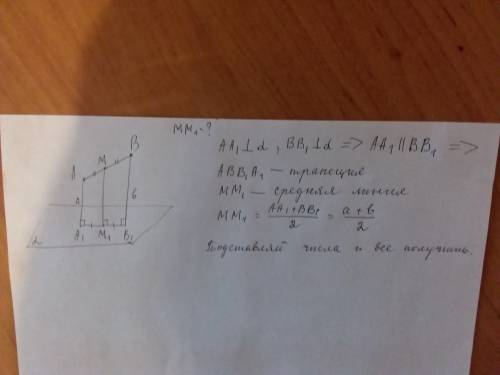 MM₁-?
AA₁⊥α, BB₁⊥α => AA₁||BB₁ =>
ABB₁A₁ — трапеция
MM₁ — средняя линия
MM₁ = (AA₁+BB₁)/2 = (a+b)/2
Подставляй числа и все получишь.
B
M
A
a
b
A₁ M₁ B₁
α